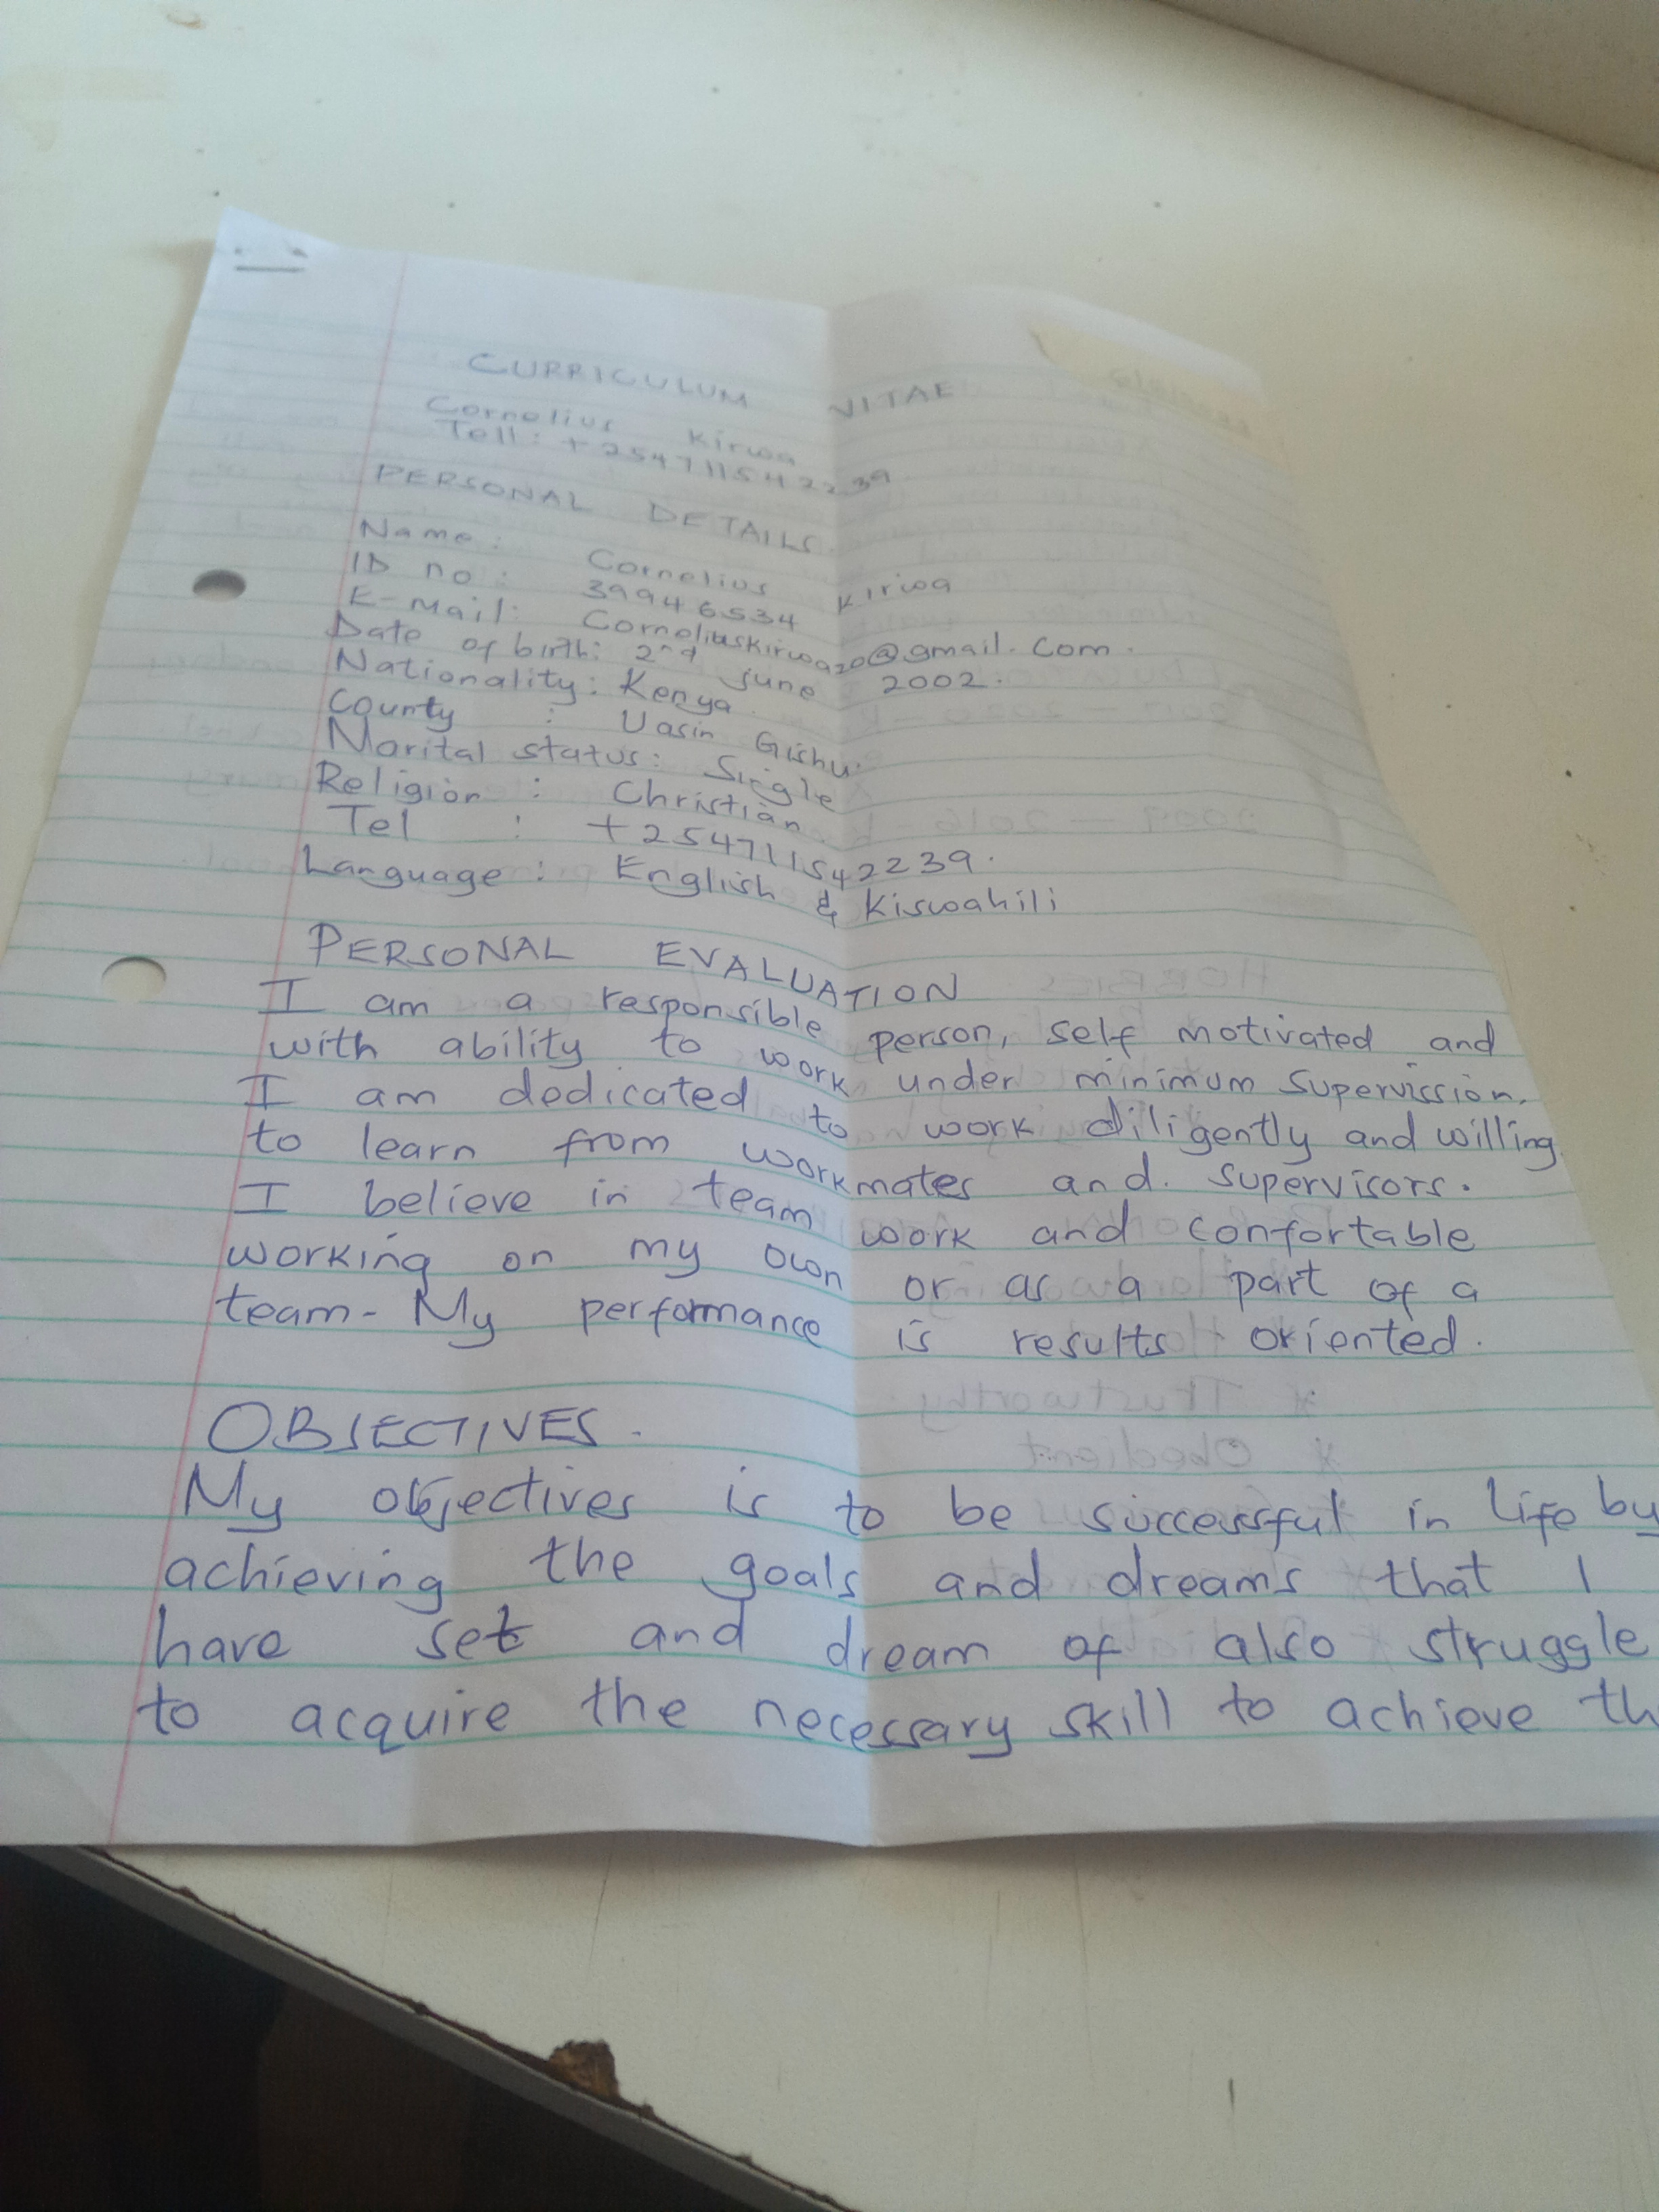 CURRICULUM VITAE
Cornelius Kirwa
Tell: +254711542239
PERSONAL DETAILS.
Name: Cornelius Kirwa
ID no: 39946534
E-Mail: Corneliuskirwa20@gmail.com.
Date of birth: 2nd june 2002.
Nationality: Kenya
County : Uasin Gishu.
Marital status: Single
Religion : Christian
Tel : +254711542239.
Language: English & Kiswahili
PERSONAL EVALUATION
I am a responsible person, self motivated and
with ability to work under minimum supervission.
I am dedicated to work diligently and willing
to learn from workmates and. supervisors.
I believe in team work and confortable
working on my own or as a part of a
team- My performance is results oriented.
OBJECTIVES.
My objectives is to be successful in life by
achieving the goals and dreams that I
have set and dream of also struggle
to acquire the necessary skill to achieve th